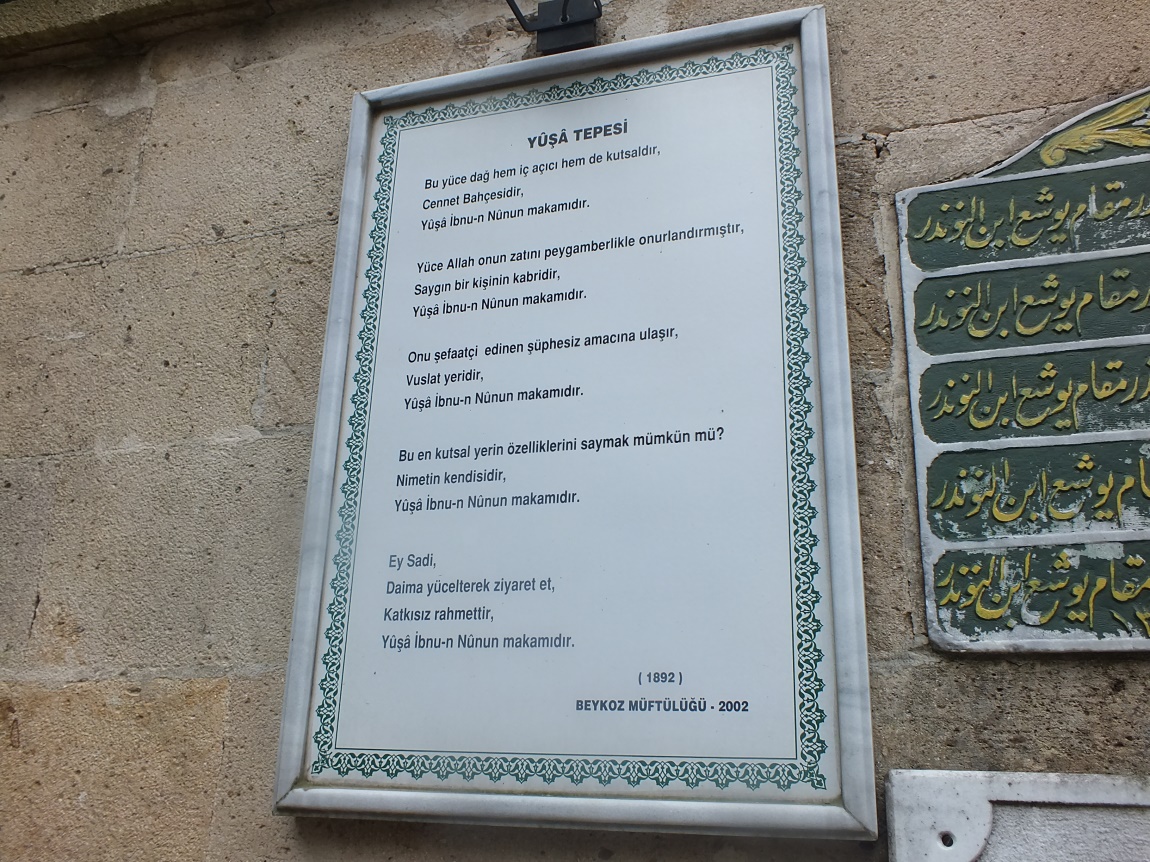 YÛŞÂ TEPESİ
Bu yüce dağ hem iç açıcı hem de kutsaldır,
Cennet Bahçesidir,
Yûşâ İbnu-n Nûnun makamıdır.
Yüce Allah onun zatını peygamberlikle onurlandırmıştır,
Saygın bir kişinin kabridir,
Yûşâ İbnu-n Nûnun makamıdır.
Onu şefaatçi edinen şüphesiz amacına ulaşır,
Vuslat yeridir,
Yûşâ İbnu-n Nûnun makamıdır.
Bu en kutsal yerin özelliklerini saymak mümkün mü?
Nimetin kendisidir,
Yûşâ İbnu-n Nûnun makamıdır.
Ey Sadi,
Daima yücelterek ziyaret et,
Katkısız rahmettir,
Yûşâ İbnu-n Nûnun makamıdır.
( 1892 )
BEYKOZ MÜFTÜLÜĞÜ - 2002
مقام يوشع ابن النوندر
مقام يوشع ابن النوندر
مقام يوشع ابن النوندر
يوشع ابن النوندر
مقام يوشع ابن النوندر